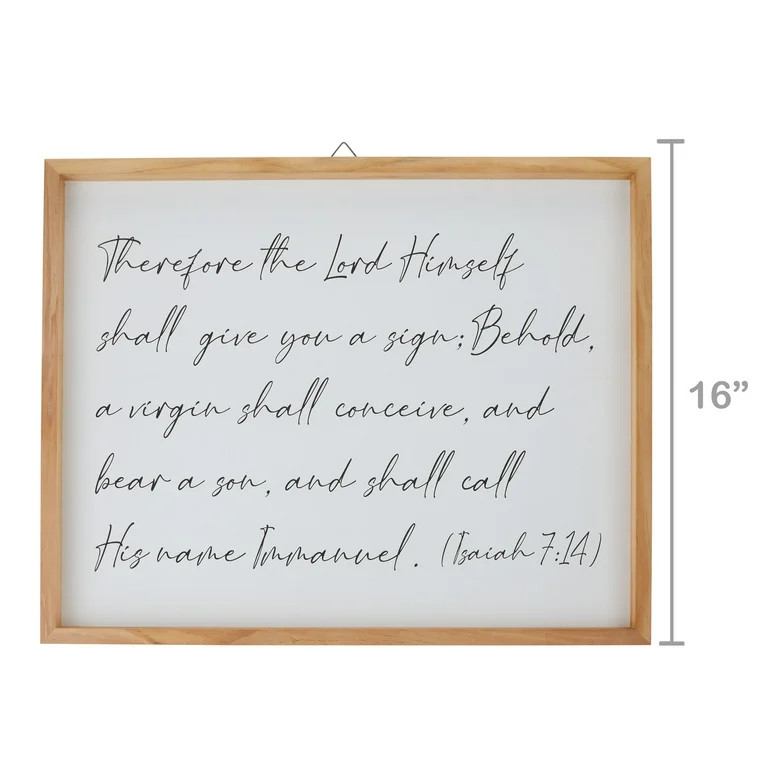 Therefore the Lord Himself
shall give you a sign; Behold,
a virgin shall conceive, and
bear a son, and shall call
His name Immanuel. (Isaiah 7:14)
16”